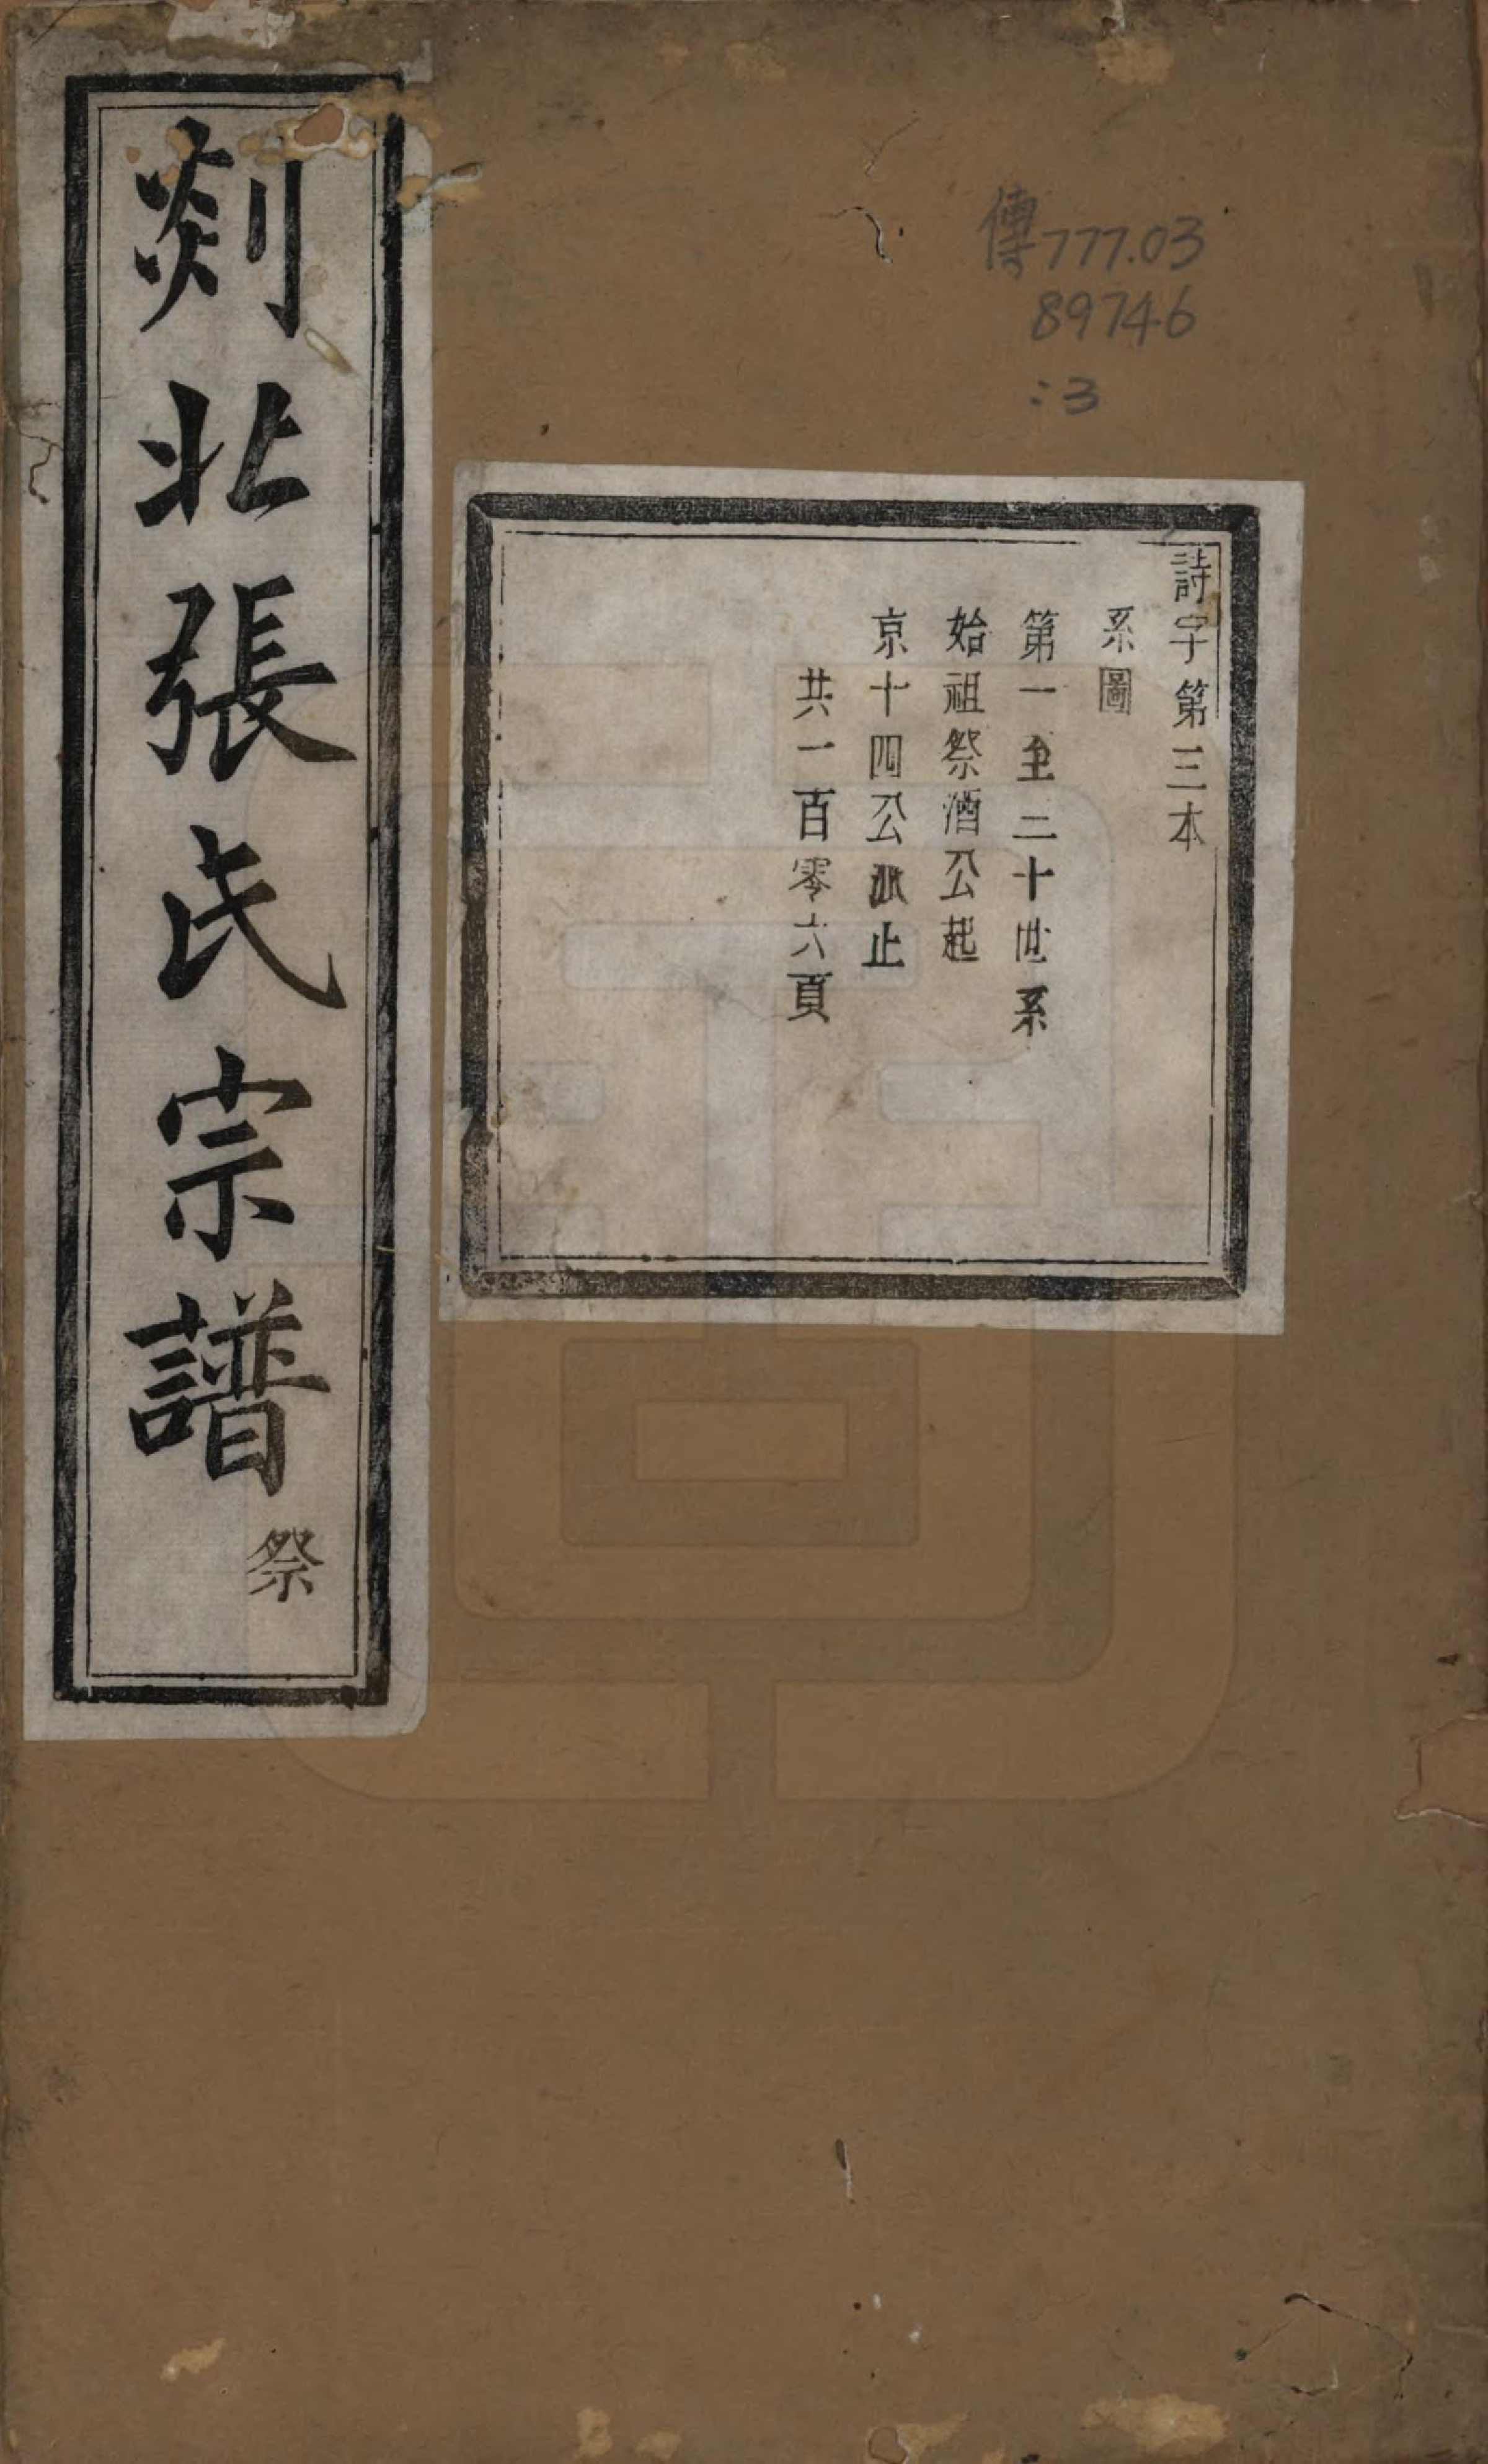 剡北張氏宗譜
祭
傳777.03
89746
:3
詩字第三本
系圖
第一至二十世系
始祖祭酒公起
京十四公派止
共一百零六頁